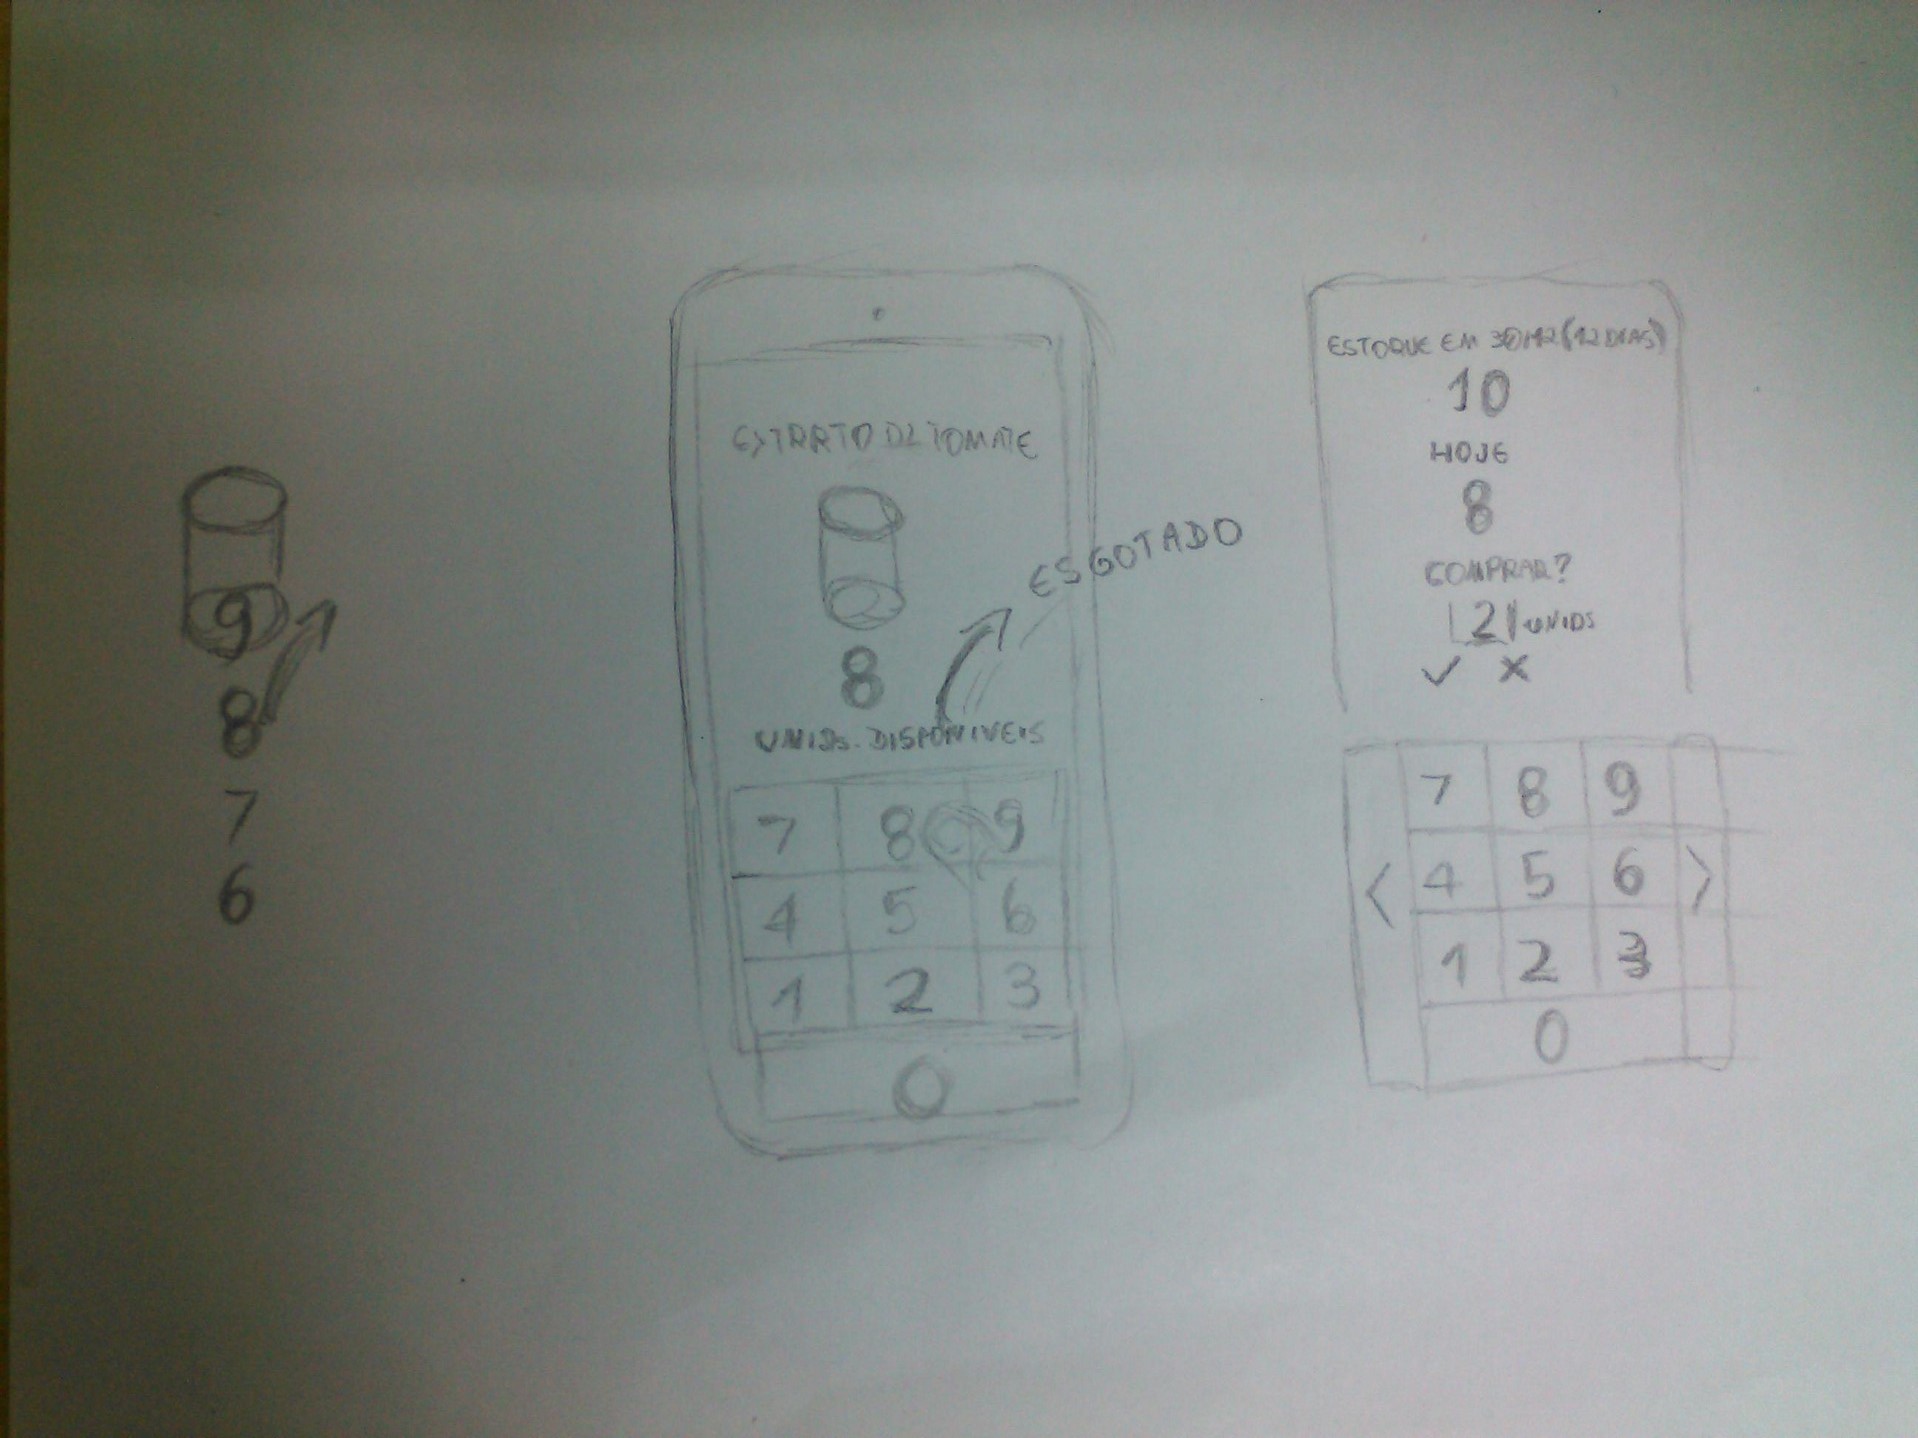 9
8
7
6
EXTRATO DE TOMATE
8
UNIDS. DISPONIVEIS
ESGOTADO
7 8 9
4 5 6
1 2 3
0
ESTOQUE EM (12 DIAS)
10
HOJE
8
COMPRAR?
2 UNIDS
✓ X
7 8 9
< 4 5 6 >
1 2 3
0